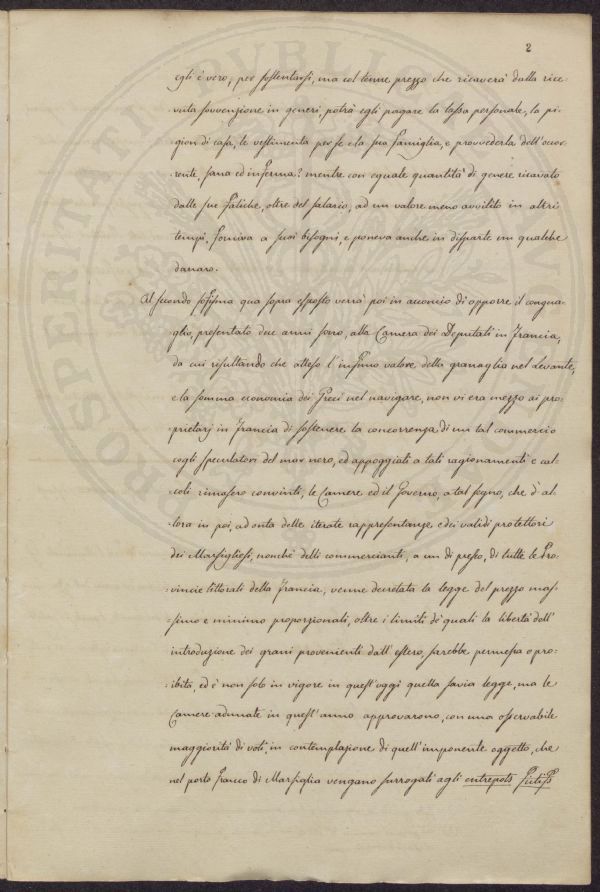 2
egli è vero, per sostentarsi, ma col tenue prezzo che ricaverà dalla rice-
vuta sovvenzione in generi, potrà egli pagare la tassa personale, la pi-
gion di casa, le vestimenta per se e la sua famiglia, e provvederla dell'occor-
rente, sana ed inferma? mentre con eguale quantità di genere ricavato
dalle sue fatiche, oltre del salario, ad un valore meno avvilito in altri
tempi, forniva a suoi bisogni, e poneva anche in disparte un qualche
danaro.
Al secondo sofisma qua sopra esposto verrà poi in acconcio di opporre il congua-
glio, presentato due anni sono, alla Camera dei Deputati in Francia,
da cui risultando che atteso l'infimo valore della granaglia nel Levante,
e la somma economia dei Greci nel navigare, non vi era mezzo ai pro-
prietarj in Francia di sostenere la concorrenza di un tal commercio
cogli speculatori del mar nero, ed appoggiati a tali ragionamenti e cal-
coli rimasero convinti, le Camere ed il Governo, a tal segno, che d'al-
lora in poi, ad onta delle iterate rappresentanze e dei validi protettori
dei Marsigliesi, nonchè delli commercianti, a un di presso, di tutte le Pro-
:vincie littorali della Francia, venne decretata la legge del prezzo mas-
:simo e minimo proporzionali, oltre i limiti de quali la libertà dell'
introduzione dei grani provenienti dall'estero, sarebbe permessa o pro-
:ibita, ed è non solo in vigore in quest'oggi quella savia legge, ma le
Camere adunate in quest'anno approvarono, con una osservabile
maggiorità di voti, in contemplazione di quell'imponente oggetto, che
nel porto franco di Marsiglia vengano surrogati agli entrepots fictifs
PROSPERITATI PUBLICAE